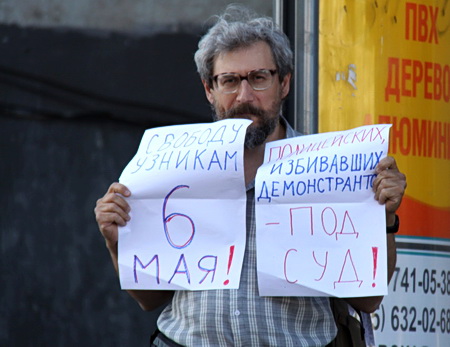 СВОБОДУ
УЗНИКАМ
6
МАЯ!
ПОЛИЦЕЙСКИХ,
ИЗБИВАВШИХ
ДЕМОНСТРАНТОВ
- ПОД
СУД!
ПВХ
ДЕРЕВО
ЛЮМИНИ
741-05-38
5) 632-02-68